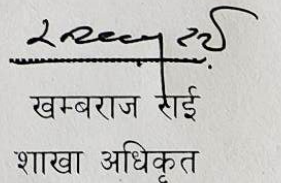 खम्बराज राई
शाखा अधिकृत